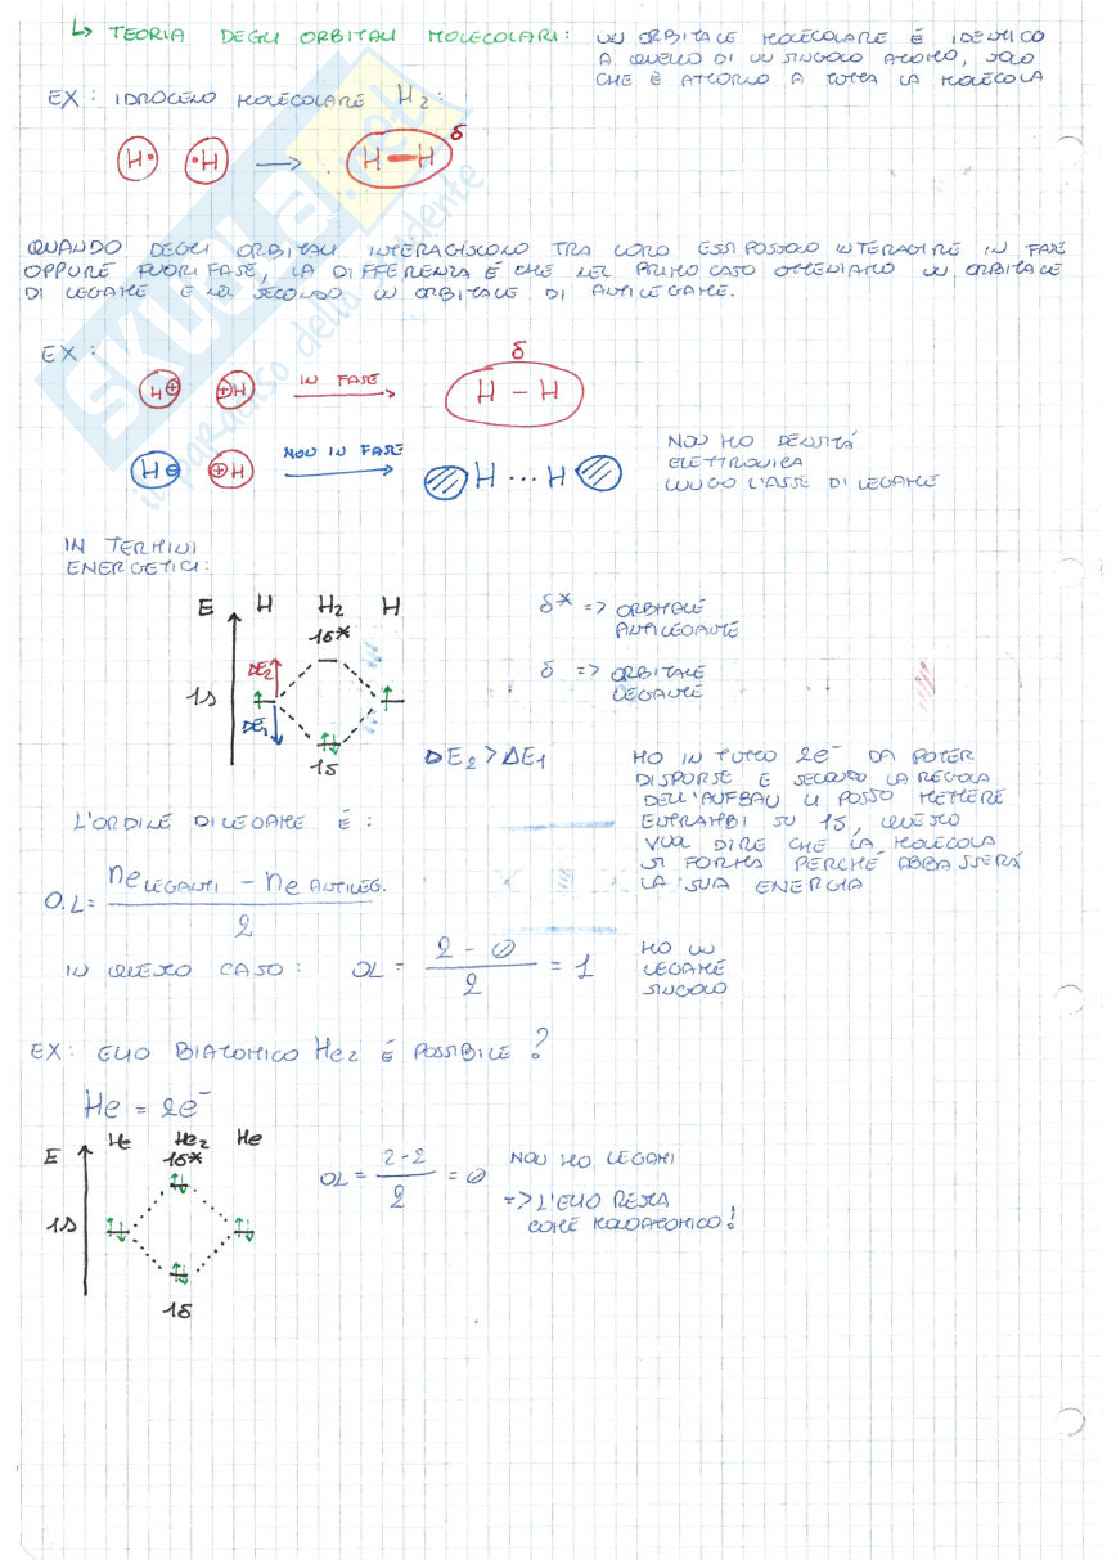 ↳ TEORIA DEGLI ORBITALI MOLECOLARI: UN ORBITALE MOLECOLARE È IDENTICO
A QUELLO DI UN SINGOLO ATOMO, SOLO
CHE È ATTORNO A TUTTA LA MOLECOLA
EX: IDROGENO MOLECOLARE H2:
H· ·H → H—H δ
QUANDO DEGLI ORBITALI INTERAGISCONO TRA LORO ESSI POSSONO INTERAGIRE IN FASE
OPPURE FUORI FASE, LA DIFFERENZA È CHE NEL PRIMO CASO OTTENIAMO UN ORBITALE
DI LEGAME E NEL SECONDO UN ORBITALE DI ANTILEGAME.
EX:
H⊕ ⊕H IN FASE → H – H δ
H⊖ ⊕H NON IN FASE → H ... H
NON HO DENSITÀ
ELETTRONICA
LUNGO L'ASSE DI LEGAME
IN TERMINI
ENERGETICI:
E H H2 H
1δ*
ΔE2
1s
ΔE1
1δ
δ* => ORBITALE
ANTILEGANTE
δ => ORBITALE
LEGANTE
ΔE2 > ΔE1
HO IN TUTTO 2e⁻ DA POTER
DISPORRE E SECONDO LA REGOLA
DELL'AUFBAU LI POSSO METTERE
ENTRAMBI SU 1δ, QUESTO
VUOL DIRE CHE LA MOLECOLA
SI FORMA PERCHÉ ABBASSERÀ
LA SUA ENERGIA
L'ORDINE DI LEGAME È:
O.L= ne LEGANTI - ne ANTILEG.
2
IN QUESTO CASO: OL = 2 - 0 / 2 = 1
HO UN
LEGAME
SINGOLO
EX: ELIO BIATOMICO He2 È POSSIBILE?
He = 2e⁻
E He He2 He
1δ*
1s
1δ
OL = 2-2 / 2 = 0
NON HO LEGAMI
=> L'ELIO RESTA
COME MONOATOMICO!
SKUOLA.net
il paradiso dello studente